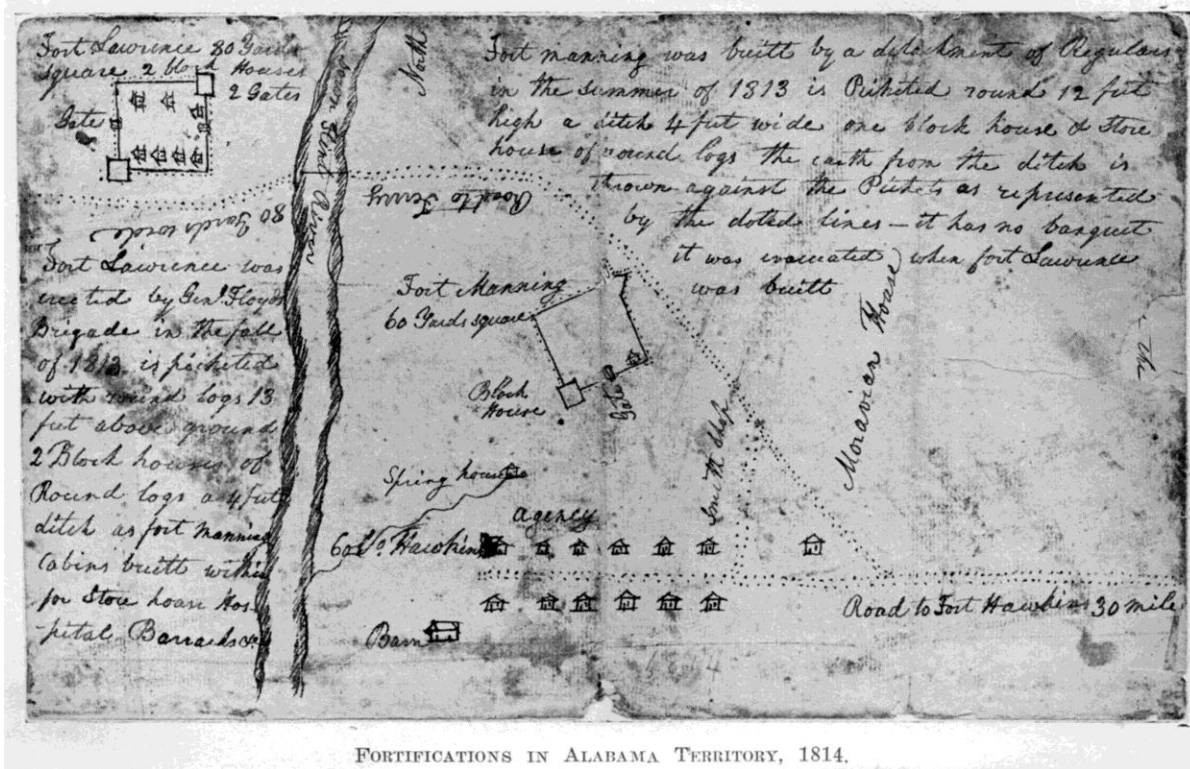 Fort Lawrence 80 Yards
square 2 block Houses
2 Gates
Gate
80 Yards wide
Fort Lawrence was
erected by Genl Floyds
Brigade in the fall
of 1813 is picketed
with round logs 13
feet above ground
2 Block houses of
Round logs a 4 feet
ditch as fort Manning
Cabins built within
for Store house Hos
-pital Barracks &c
River
North
Road to Ferry
Fort manning was built by a detachment of Regulars
in the summer of 1813 is Picketed round 12 feet
high a ditch 4 feet wide one block house & Store
house of round logs the earth from the ditch is
thrown against the Pickets as represented
by the doted lines – it has no banquet
it was evacuated when fort Lawrence
was built
Fort Manning
60 Yards square
Block
House
Gate
Spring house
agency
Smith Shop
Moravian House
The
Colo. Hawkins
Barn
Road to Fort Hawkins 30 mile
1814
FORTIFICATIONS IN ALABAMA TERRITORY, 1814.